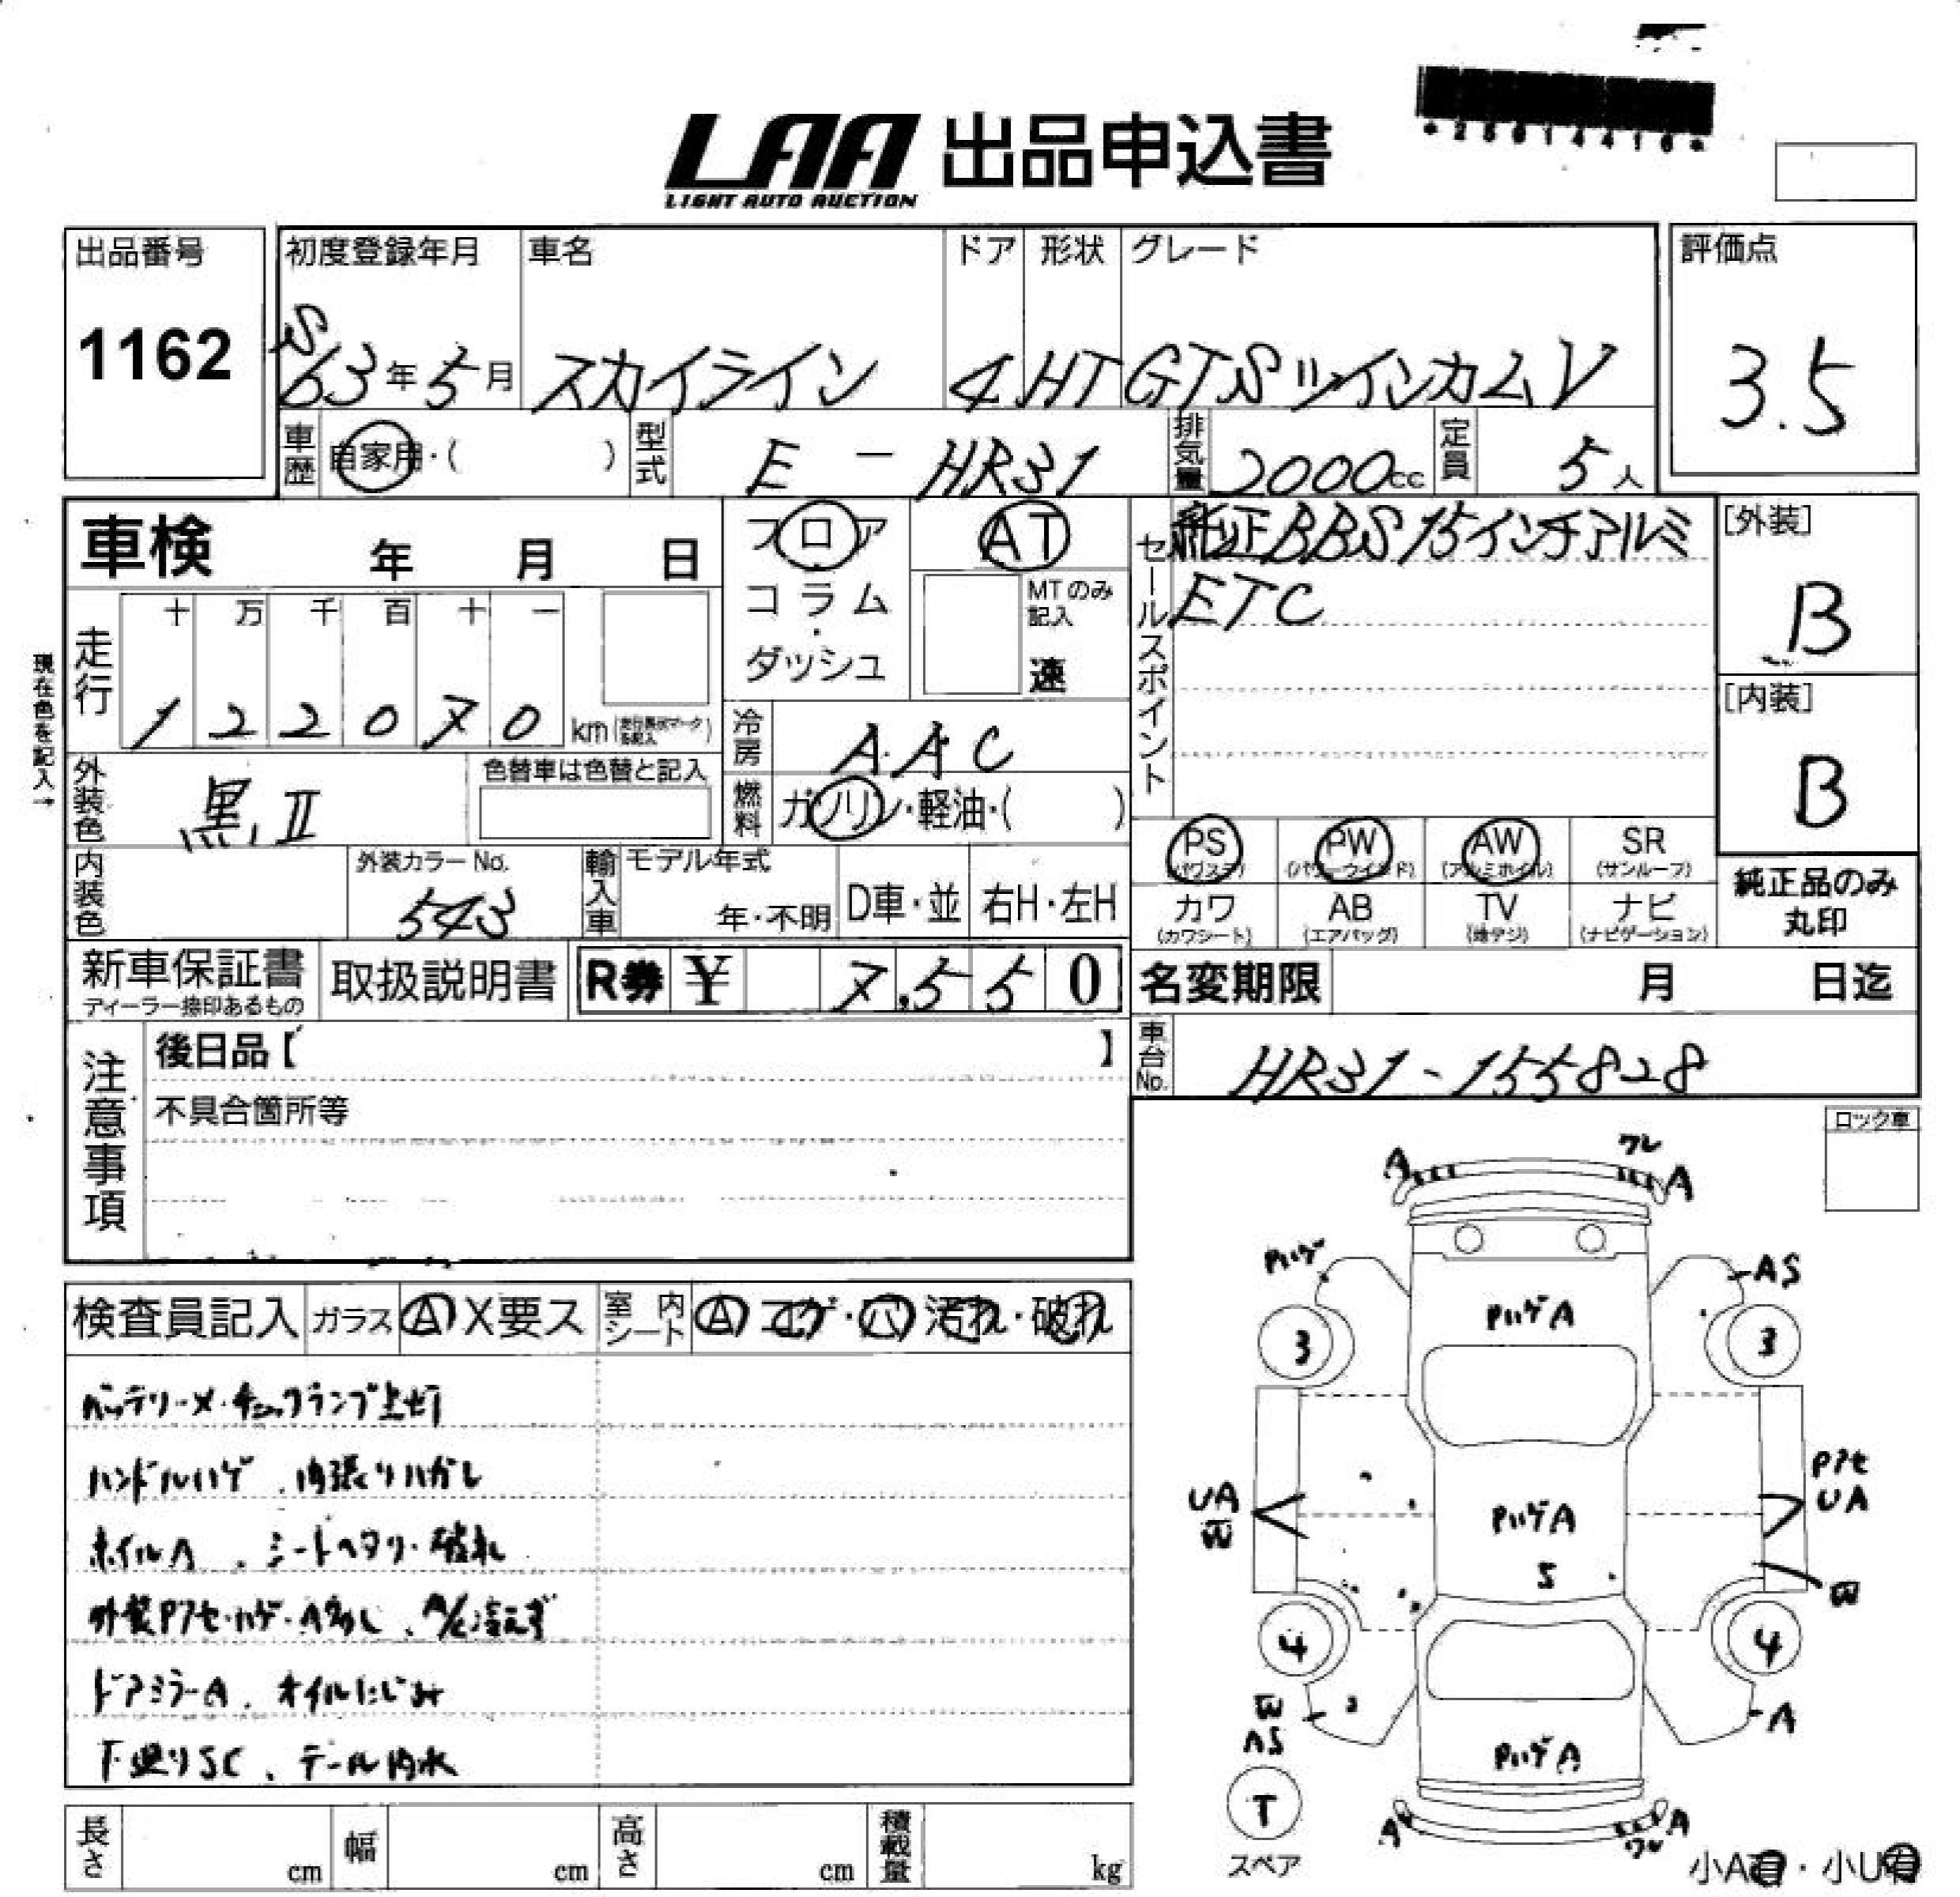 LAA 出品申込書
LIGHT AUTO AUCTION
出品番号
1162
初度登録年月 車名 ドア 形状 グレード
S63年5月 スカイライン 4 HT GTSツインカムV
評価点
3.5
車歴 自家用・( ) 型式 E-HR31 排気量 2000cc 定員 5人
車検 年 月 日
フロア
コラム
・
ダッシュ
AT
MTのみ
記入
速
セールスポイント
純正BBS15インチアルミ
ETC
[外装]
B
[内装]
B
現在色を記入→
走行
十 万 千 百 十 一
1 2 2 0 7 0 km
冷房 AAC
燃料 ガソリン・軽油・( )
外装色 黒II
色替車は色替と記入
内装色
外装カラーNo.
543
輸入車
モデル年式
年・不明 D車・並 右H・左H
PS PW AW SR
(パワステ) (パワーウインド) (アルミホイル) (サンルーフ)
カワ AB TV ナビ
(カワシート) (エアバッグ) (地デジ) (ナビゲーション)
純正品のみ
丸印
新車保証書
ディーラー捺印あるもの
取扱説明書 R券 ¥ 7,550
名変期限 月 日迄
車台No. HR31-155828
注意事項
後日品【 】
不具合箇所等
ロック車
検査員記入 ガラス A X要ス 室内シート A コゲ・穴 汚れ・破れ
バッテリーメ・チェックランプ点灯
ハンドルハゲ、内張りハガレ
ホイルA、シートヘタリ・破れ
外装Pアセ・ハゲ・A多し、A/C冷えず
ドアミラーA、オイルにじみ
下廻りSC、テール内水
長さ cm 幅 cm 高さ cm 積載量 kg
A
ワレ
A
Pハゲ
AS
PハゲA
3
3
UA
W
Pアセ
UA
PハゲA
S
W
4
4
W
AS
A
PハゲA
T
スペア
A
A
ワレ
小A有・小U有